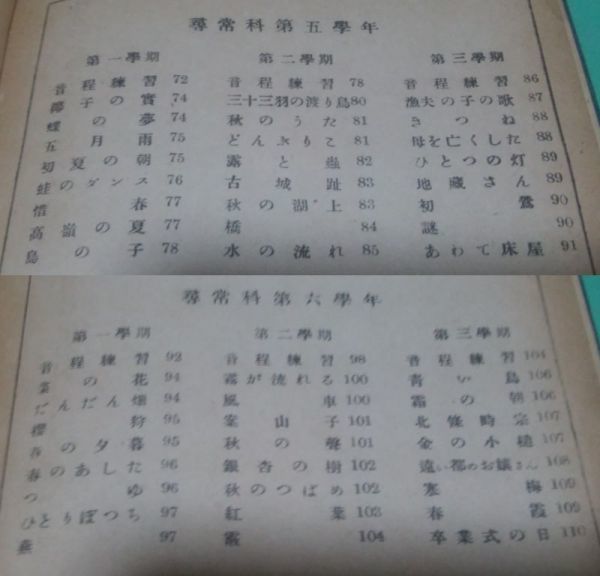 尋常科第五學年
第一學期
音程練習 72
椰子の實 74
蝶の夢 74
五月雨 75
初夏の朝 75
蛙のダンス 76
惜春 77
高嶺の夏 77
島の子 78
第二學期
音程練習 78
三十三羽の渡り鳥 80
秋のうた 81
どんぶりこ 81
露と蟲 82
古城趾 83
秋の湖上 83
橋 84
水の流れ 85
第三學期
音程練習 86
漁夫の子の歌 87
きつね 88
母を亡くした 88
ひとつの灯 89
地藏さん 89
初鶯 90
謎 90
あわて床屋 91
尋常科第六學年
第一學期
音程練習 92
菜の花 94
だんだん畑 94
櫻狩 95
春の夕暮 95
春のあした 96
つゆ 96
ひとりぼつち 97
97
第二學期
音程練習 98
霧が流れる 100
風車 100
案山子 101
秋の聲 101
銀杏の樹 102
秋のつばめ 102
紅葉 103
104
第三學期
音程練習 104
靑い鳥 106
霜の朝 106
北條時宗 107
金の小槌 107
遠い都のお孃さん 108
寒梅 109
春霞 109
卒業式の日 110